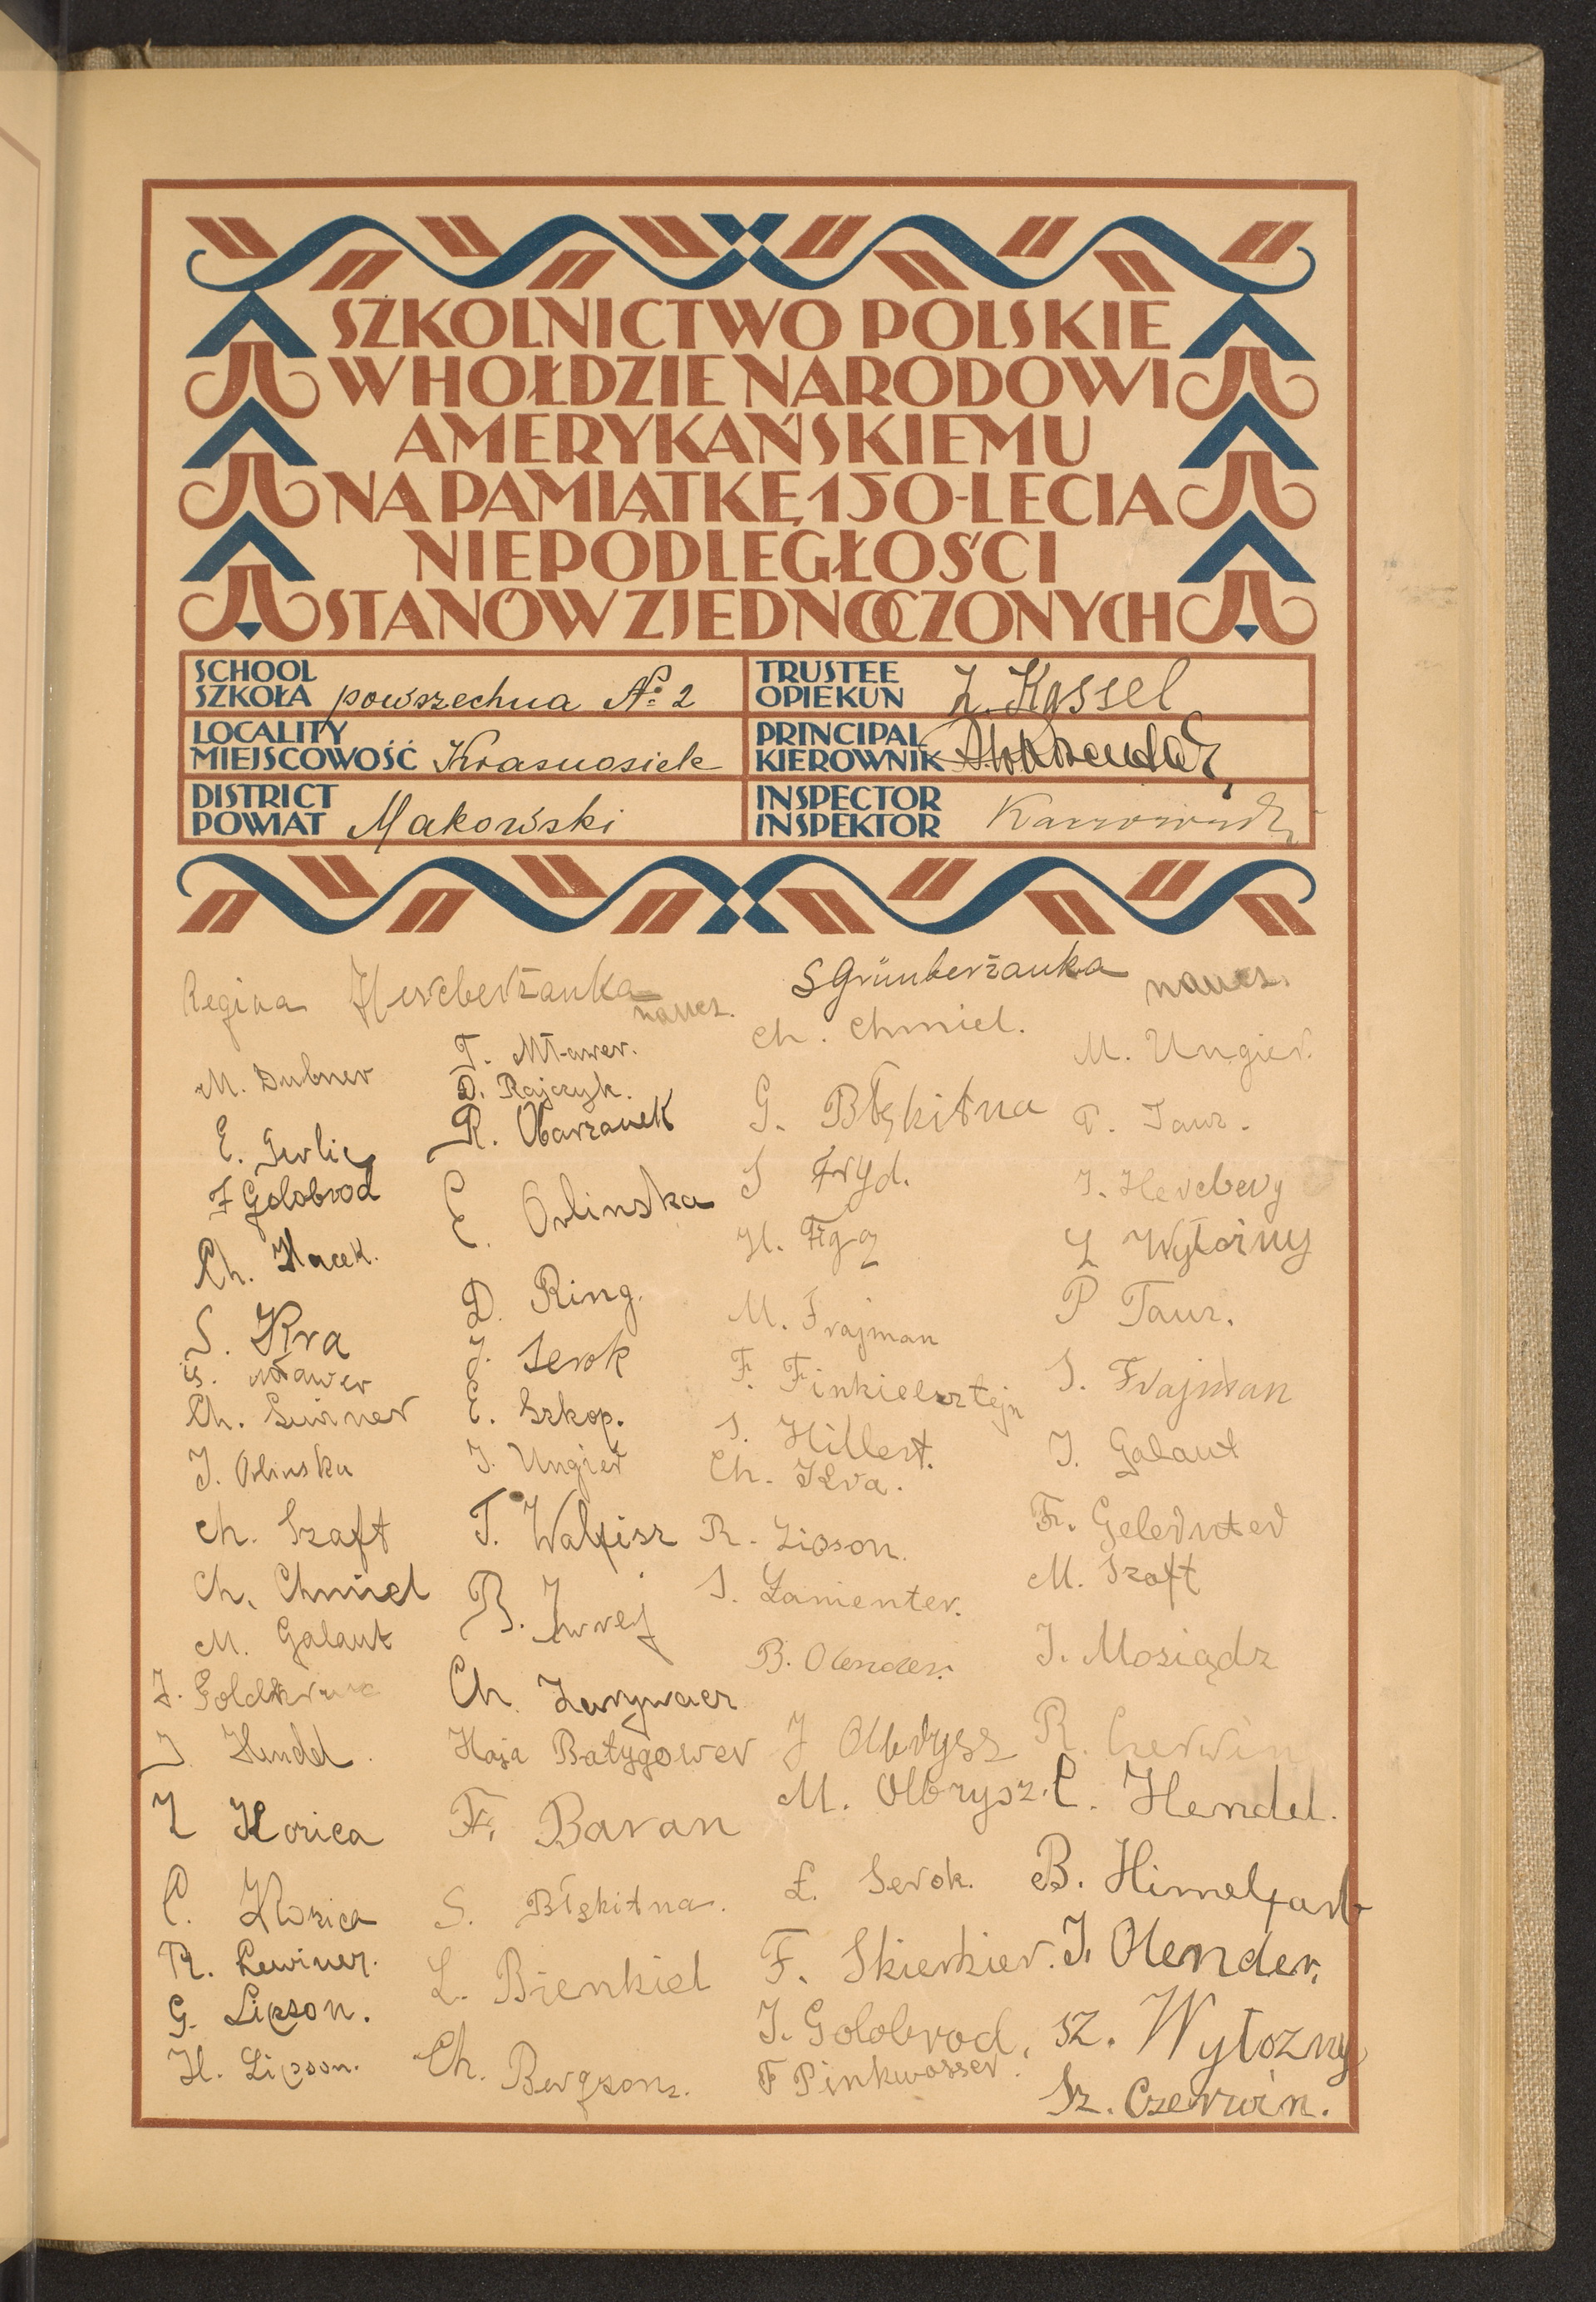 SZKOLNICTWO POLSKIE
W HOŁDZIE NARODOWI
AMERYKAŃSKIEMU
NA PAMIĄTKĘ 150-LECIA
NIEPODLEGŁOŚCI
STANÓW ZJEDNOCZONYCH
SCHOOL
SZKOŁA powszechna № 2
TRUSTEE
OPIEKUN Z. Kassel
LOCALITY
MIEJSCOWOŚĆ Krasnosielc
PRINCIPAL
KIEROWNIK
DISTRICT
POWIAT Makowski
INSPECTOR
INSPEKTOR
Regina Hercberżanka naucz.
S Grünberżanka naucz.
M. Dubner
E. Gerlic
F Golobrod
Ch. Hacek.
S. Kra
S. Mławer
Ch. Lewiner
J. Orlinska
Ch. Szaft
Ch. Chmiel
M. Galant
J.
J. Hendel.
Z Korica
C. Korica
R. Lewiner.
G. Lipson.
H. Lipson.
T. Mławer.
D. Rajczyk.
R. Obarzanek
E. Orlinska
D. Ring.
J. Serok
E. Szkop.
J. Ungier
T. Walfisz
B. Jwrej
Ch.
Haja Batygower
F. Baran
S. Błękitna.
L. Bienkiel
Ch. Bergzon.
Ch. Chmiel.
G. Błękitna
S Fryd.
H. Figa
M. Frajman
F. Finkielsztejn
S. Hillert.
Ch. Kra.
R. Lipson.
S. Lamenter.
B. Olender.
J Olbrysz
M. Olbrysz.
Ł. Serok.
F. Skierkier.
J. Golobrod,
F Pinkwasser.
M. Ungier.
P. Taur.
J. Hercberg
L Wyłozny
P Taur.
S. Frajman
J. Galant
Fr. Geledrter
M. Szaft
J. Mosiądz
R. Czerwin
C. Hendel.
B. Himelfarb
J. Olender.
Sz. Wyłozny
Sz. Czerwin.